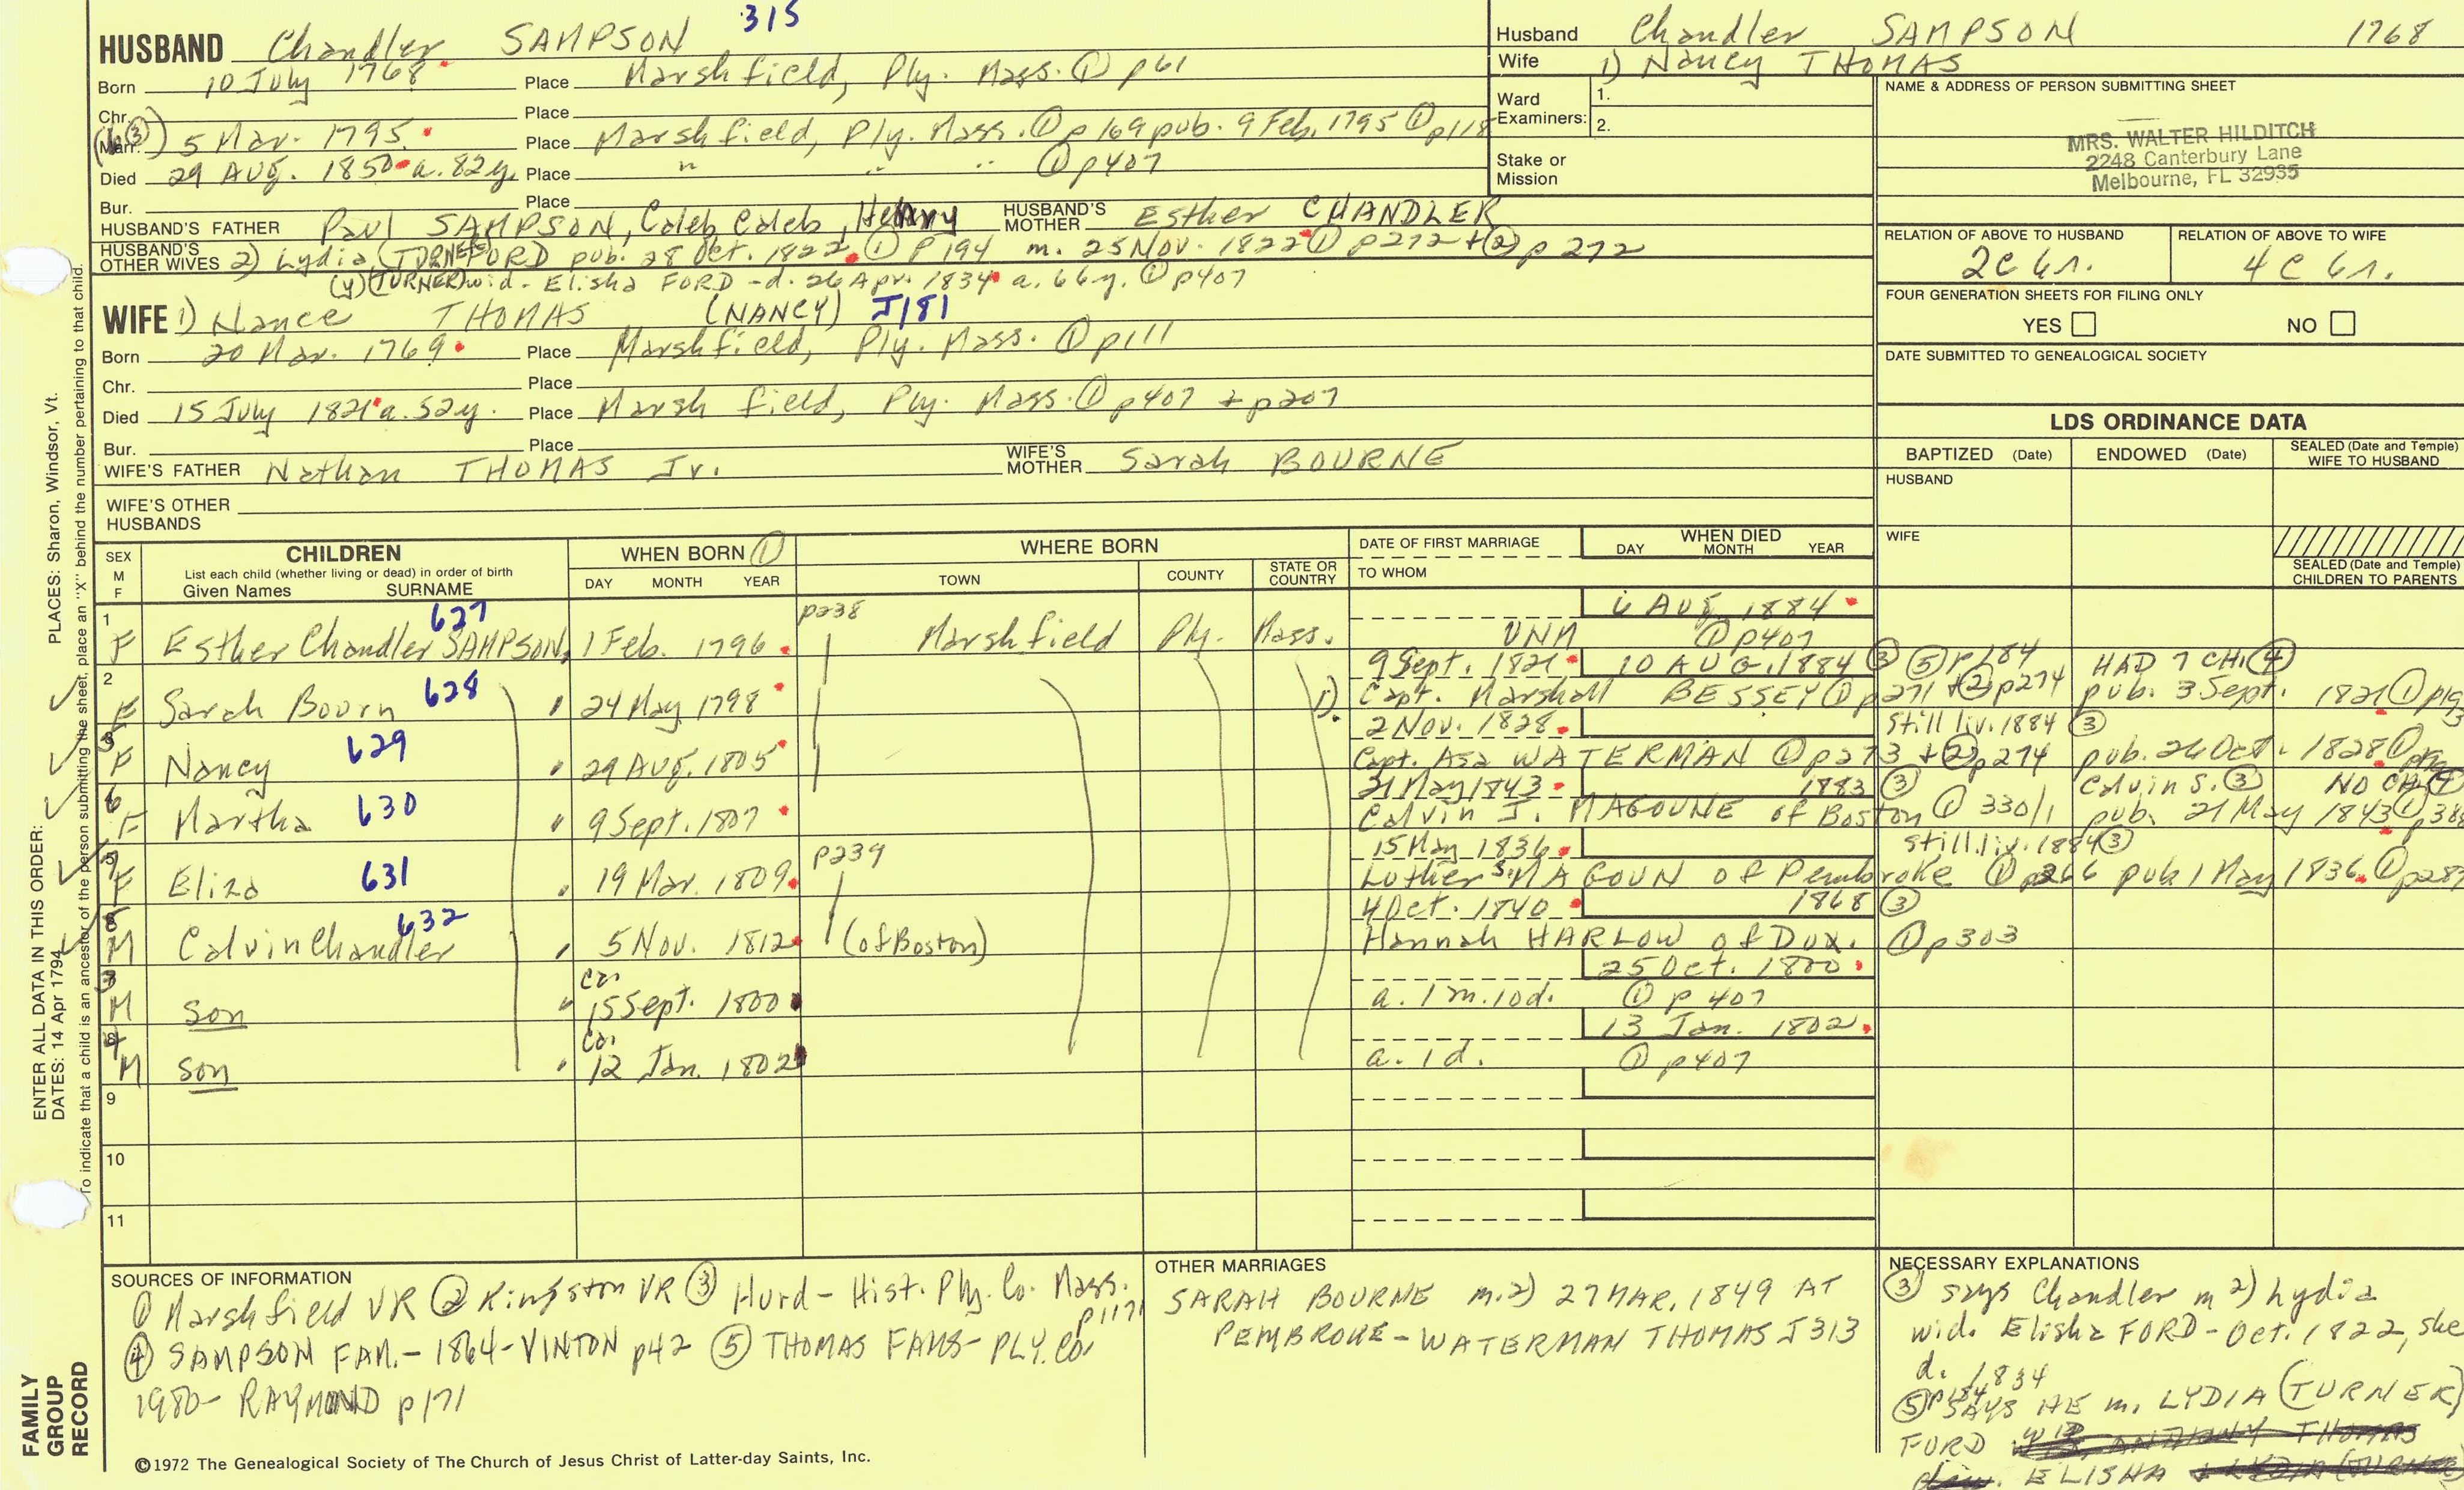 315
HUSBAND Chandler SAMPSON
Born 10 July 1768 Place Marshfield, Ply. Mass. ① p61
Chr. Place
(③) Marr. 5 Mar. 1795 Place Marshfield, Ply. Mass. ① p169 pub. 9 Feb. 1795 ① p118
Died 29 AUG. 1850 a. 82y. Place " " " ① p407
Bur. Place
HUSBAND'S FATHER Paul SAMPSON, Caleb, Caleb, Henry HUSBAND'S MOTHER Esther CHANDLER
HUSBAND'S OTHER WIVES 2) Lydia (TURNER) FORD pub. 28 Oct. 1822 ① p194 m. 25 Nov. 1822 ① p272 + ② p272
(y) (TURNER) wid. Elisha FORD - d. 26 Apr. 1834 a. 66y. ① p407
WIFE 1) Nance THOMAS (NANCY) J181
Born 20 Mar. 1769 Place Marshfield, Ply. Mass. ① p111
Chr. Place
Died 15 July 1821 a. 52y. Place Marshfield, Ply. Mass. ① p407 + p207
Bur. Place
WIFE'S FATHER Nathan THOMAS Jr. WIFE'S MOTHER Sarah BOURNE
WIFE'S OTHER HUSBANDS
Husband Chandler SAMPSON 1768
Wife 1) Nancy THOMAS
Ward Examiners: 1.
2.
Stake or Mission
NAME & ADDRESS OF PERSON SUBMITTING SHEET
MRS. WALTER HILDITCH
2248 Canterbury Lane
Melbourne, FL 32935
RELATION OF ABOVE TO HUSBAND RELATION OF ABOVE TO WIFE
2C 6r. 4C 6r.
FOUR GENERATION SHEETS FOR FILING ONLY
YES NO
DATE SUBMITTED TO GENEALOGICAL SOCIETY
LDS ORDINANCE DATA
BAPTIZED (Date) ENDOWED (Date) SEALED (Date and Temple) WIFE TO HUSBAND
HUSBAND
WIFE
SEALED (Date and Temple) CHILDREN TO PARENTS
SEX M F CHILDREN WHEN BORN ① WHERE BORN DATE OF FIRST MARRIAGE WHEN DIED
List each child (whether living or dead) in order of birth
Given Names SURNAME DAY MONTH YEAR TOWN COUNTY STATE OR COUNTRY TO WHOM DAY MONTH YEAR
1 627 p238 6 AUG. 1884
F Esther Chandler SAMPSON 1 Feb. 1796 Marshfield Ply. Mass. UNM ① p407
2 628 9 Sept. 1821 10 AUG. 1884 ③ ⑤ p184 HAD 7 CH. ④
F Sarah Bourn " 24 May 1798 1) Capt. Marshall BESSEY ① p271 + ② p274 pub. 3 Sept. 1821 ① p193
629 2 Nov. 1828 Still liv. 1884 ③
F Nancy " 29 AUG. 1805 Capt. Asa WATERMAN ① p273 + ② p274 pub. 26 Oct. 1828 ①
6 630 21 May 1843 1883 ③ Calvin S. ③ NO CH. ④
F Martha " 9 Sept. 1807 Calvin J. MAGOUNE of Boston ① 330/1 pub. 21 May 1843 ①
631 p239 15 May 1836 still liv. 1884 ③
F Eliza " 19 Mar. 1809 Luther S. MAGOUN of Pembroke ① pub. 1 May 1836 ①
8 632 4 Oct. 1840 1868 ③
M Calvin Chandler " 5 Nov. 1812 (of Boston) Hannah HARLOW of Dux. ① p303
3 ca. 25 Oct. 1800
M son " 15 Sept. 1800 a. 1m. 10d. ① p407
4 ca. 13 Jan. 1802
M son " 12 Jan. 1802 a. 1d. ① p407
9
10
11
SOURCES OF INFORMATION
① Marshfield VR ② Kingston VR ③ Hurd - Hist. Ply. Co. Mass. p1171
④ SAMPSON FAM. - 1864 - VINTON p42 ⑤ THOMAS FAMS - PLY. Co.
1980 - RAYMOND p171
OTHER MARRIAGES
SARAH BOURNE m. 2) 27 MAR. 1849 AT
PEMBROKE - WATERMAN THOMAS J313
NECESSARY EXPLANATIONS
③ says Chandler m 2) Lydia
wid. Elisha FORD - Oct. 1822, she
d. 1834
⑤ p184 SAYS HE m. LYDIA (TURNER)
FORD
ELISHA
©1972 The Genealogical Society of The Church of Jesus Christ of Latter-day Saints, Inc.
FAMILY GROUP RECORD
ENTER ALL DATA IN THIS ORDER:
DATES: 14 Apr 1794 PLACES: Sharon, Windsor, Vt.
To indicate that a child is an ancestor of the person submitting the sheet, place an "X" behind the number pertaining to that child.